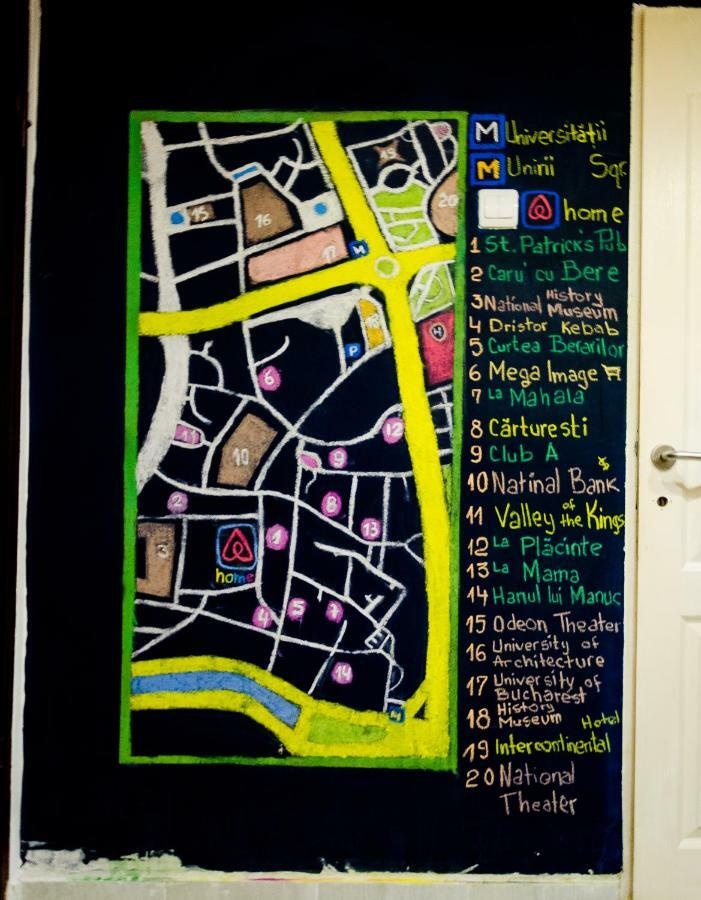 M Universității
M Unirii Sqr
home
1 St. Patrick's Pub
2 Caru' cu Bere
3 National History
Museum
4 Dristor Kebab
5 Curtea Berarilor
6 Mega Image
7 La Mahala
8 Cărturesti
9 Club A
10 Natinal Bank
11 Valley of
the Kings
12 La Plăcinte
13 La Mama
14 Hanul lui Manuc
15 Odeon Theater
16 University of
Architecture
17 University of
Bucharest
18 History
Museum
19 Hotel
Intercontinental
20 National
Theater
19
20
15
16
17
M
P
6
11
10
12
9
2
8
13
3
1
home
4
5
7
14
M